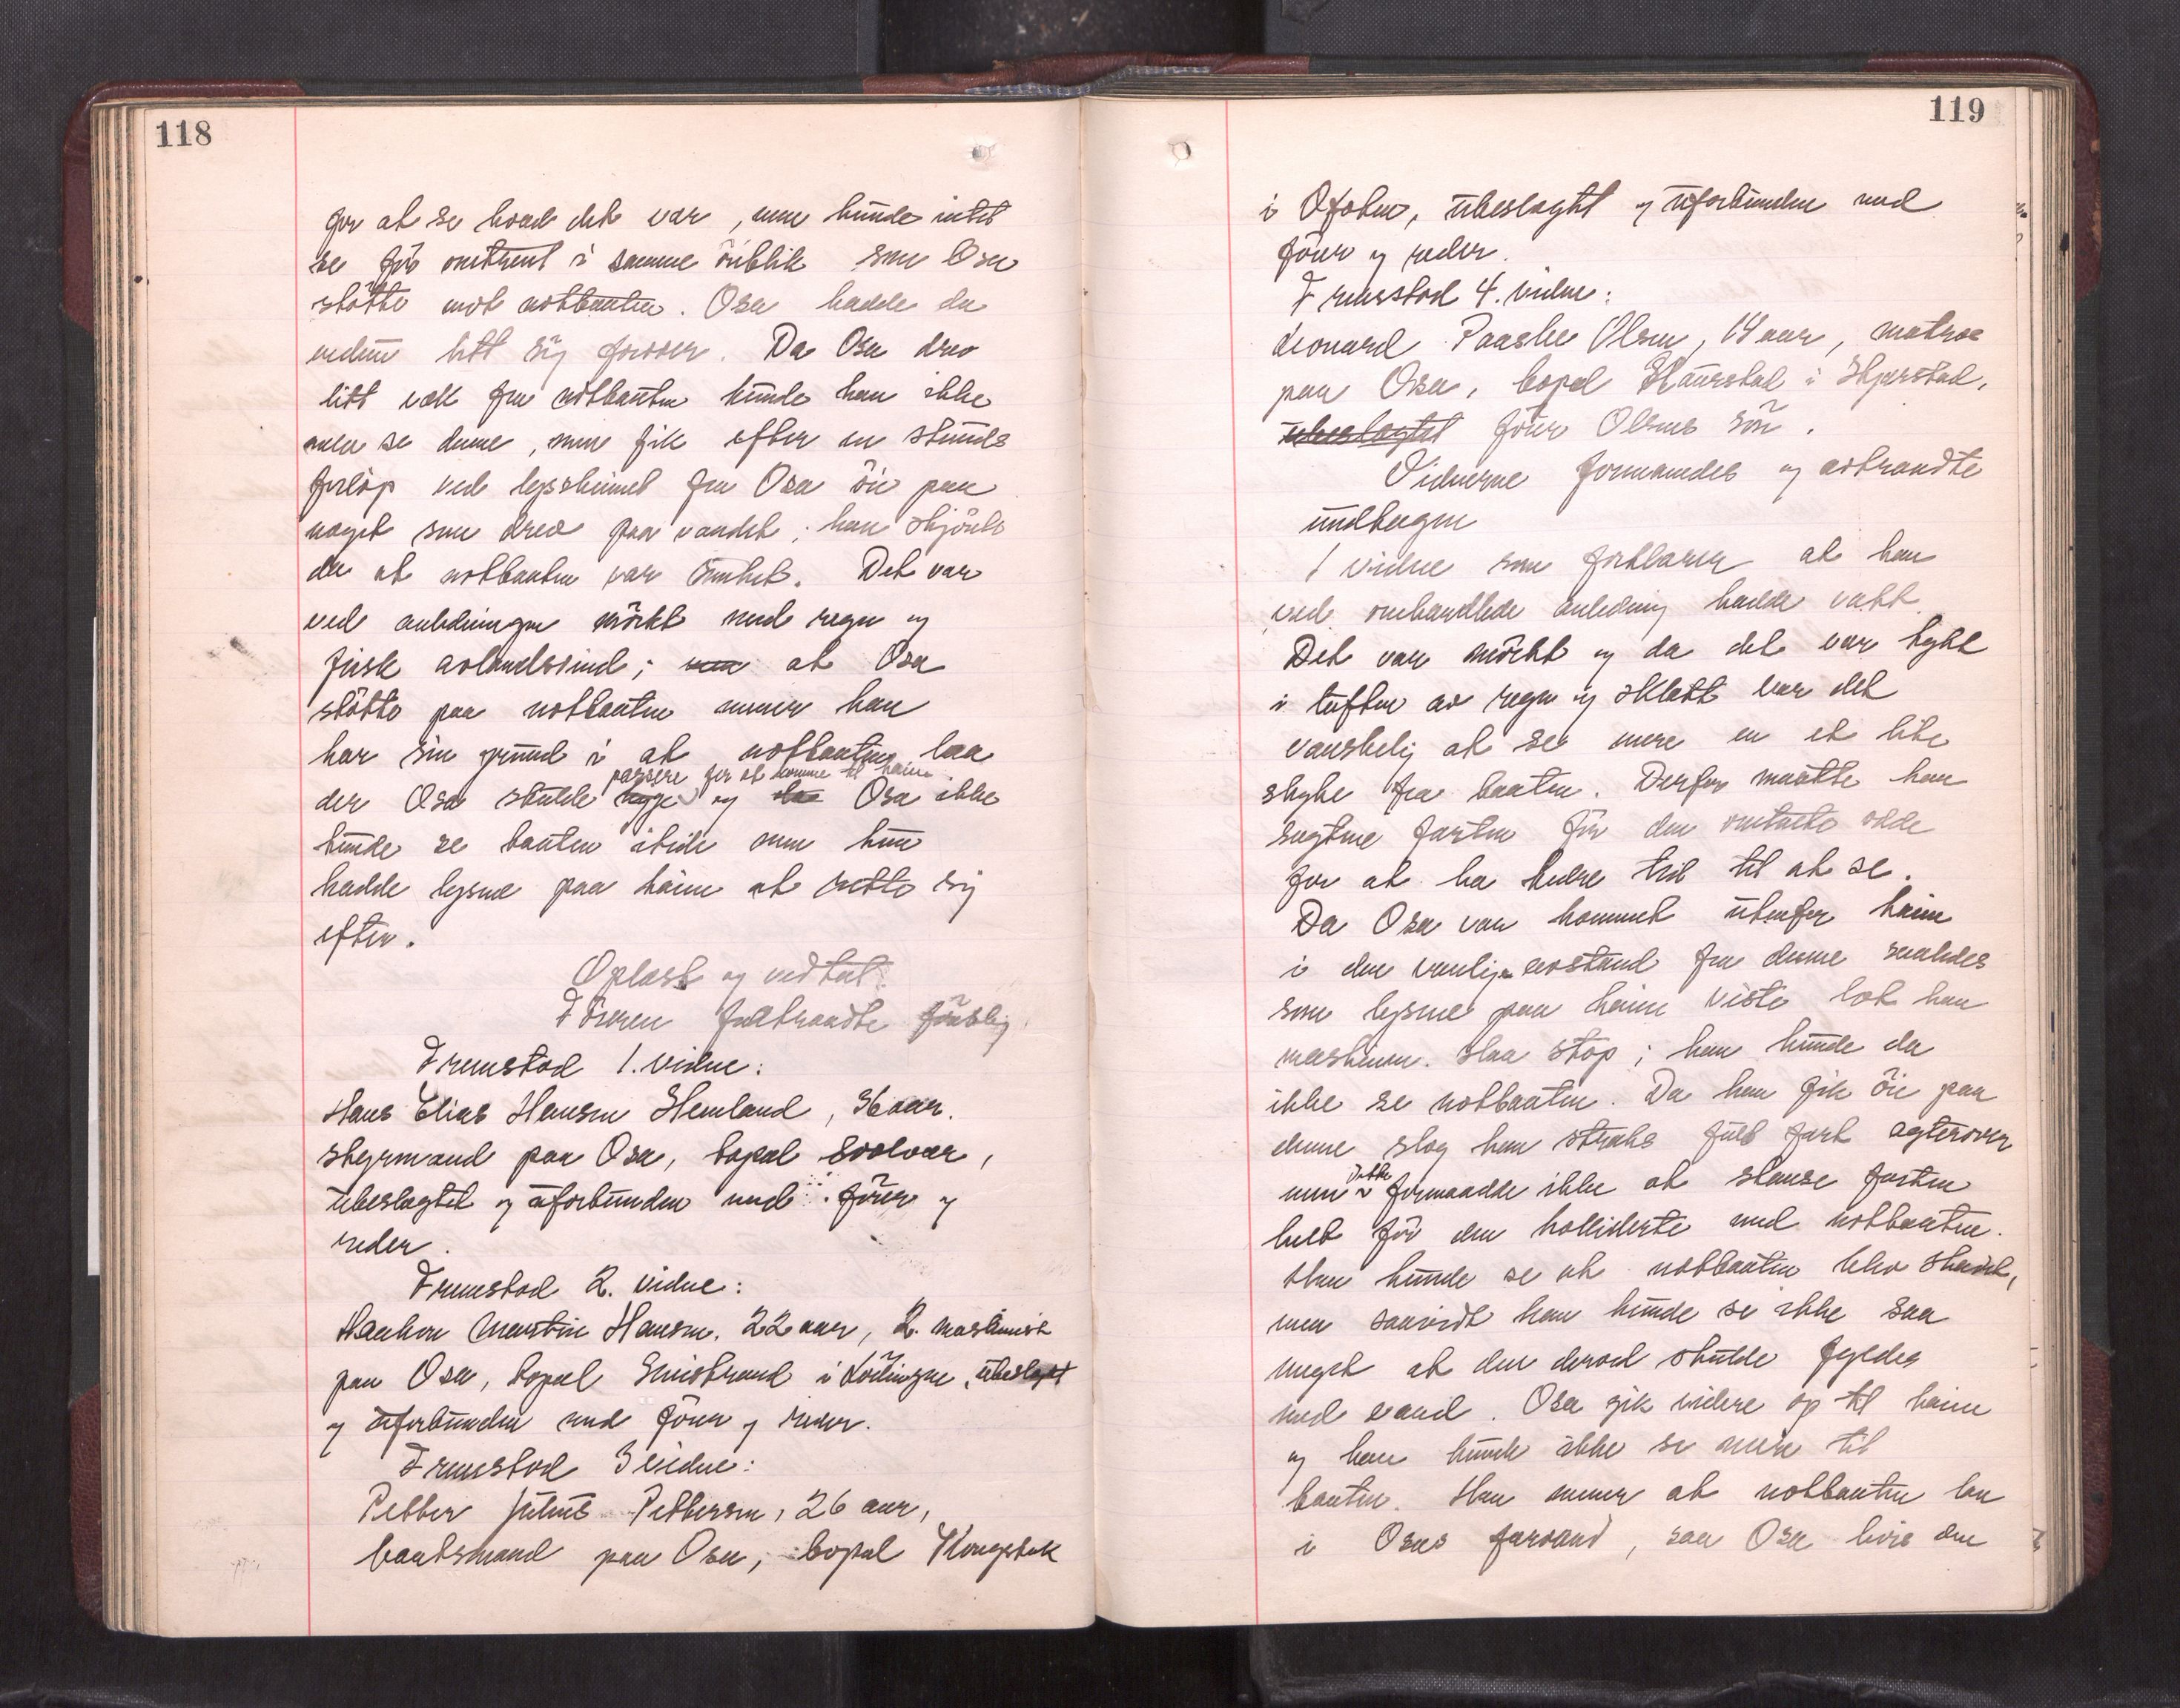 118
for at se hvad det var, men kunde intet
se før omtrent i samme öieblik som Osa
støtte mot notbaaten. Osa hadde da
litt sig forover. Da Osa drev
litt væk fra notbaaten kunde han ikke
mer se denne, men fik efter en stunds
forløp ved lysskinnet fra Osa öie paa
noget som drev paa vandet; han skjönte
da at notbaaten var kantret. Det var
ved anledningen mörkt med regn og
frisk avlandsvind; at Osa
stötte paa notbaaten mener han
har sin grund i at notbaaten laa
passere for at komme til kaien
der Osa skulde og Osa ikke
kunde se baaten itide men kun
hadde lysene paa kaien at rette sig
efter.
Oplæst og vedtat.
Föreren fratraadte
Fremstod 1. vidne:
Hans Elias Hansen Hemland, 36 aar.
styrmand paa Osa, bopæl Svolvær,
ubeslegtet og uforbunden med förer og
reder.
Fremstod 2. vidne:
Haakon Martin Hansen, 22 aar, 2. maskinist
paa Osa, bopæl i Lödingen, ubeslegtet
og uforbunden med förer og reder.
Fremstod 3 vidne:
Petter Julius Pettersen, 26 aar,
baatsmand paa Osa, bopæl
119
i Ofoten, ubeslegtet og uforbunden med
förer og reder.
Fremstod 4. vidne:
Leonard Paaske Olsen, 14 aar, matros
paa Osa, bopæl i Skjerstad,
ubeslegtet förer Olsens sön.
Vidnerne formanedes og avtraadte
undtagen
1 vidne som forklarer at han
ved omhandlede anledning hadde vakt.
Det var mörkt og da det var tykt
i luften av regn og sklett var det
vanskelig at se mere en et lite
stykke fra baaten. Derfor maatte han
sagtne farten för den omtalte odde
for at ha bedre tid til at se.
Da Osa var kommet utenfor kaien
i den vanlige avstand fra denne saaledes
som lysene paa kaien viste lot han
maskinen slaa stop; han kunde da
ikke se notbaaten. Da han fik öie paa
denne slog han straks fuld fart agterover
dette
men formaadde ikke at stanse farten
helt för den kolliderte med notbaaten.
Han kunde se at notbaaten blev skadet,
men saavidt han kunde se ikke saa
meget at den derved skulde fyldes
med vand. Osa gik videre op til kaien
og han kunde ikke se mere til
baaten. Han mener at notbaaten laa
i Osas farvand, saa Osa hvis den